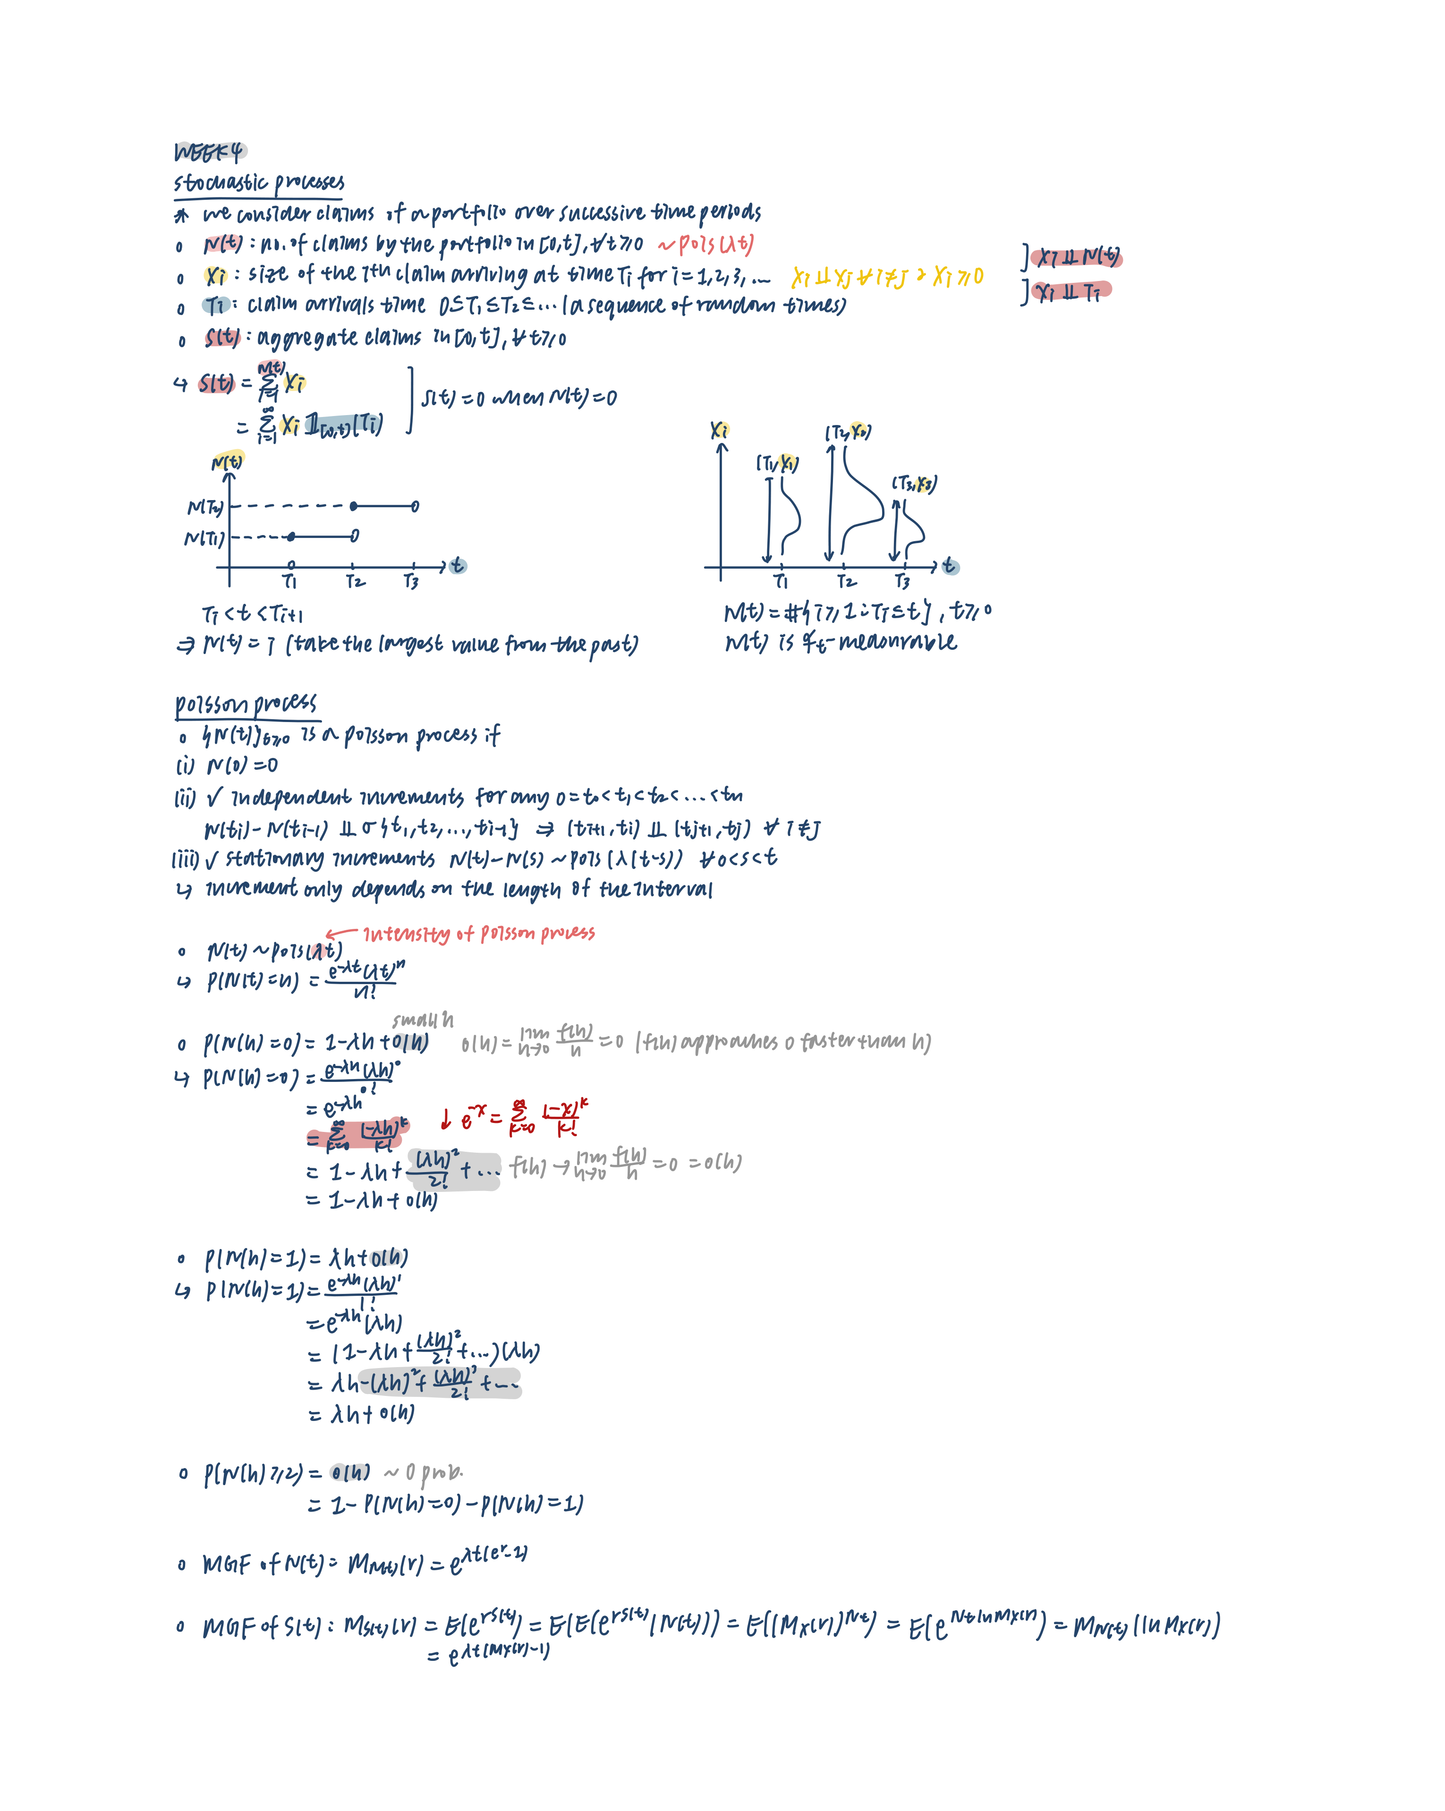 WEEK 4
stochastic processes
* we consider claims of a portfolio over successive time periods
○ N(t) : no. of claims by the portfolio in [0,t], ∀t≥0 ~Pois(λt)
○ Xi : size of the ith claim arriving at time Ti for i=1,2,3,... Xi ⫫ Xj ∀ i≠j , Xi ≥ 0 ] Xi ⫫ N(t)
○ Ti : claim arrivals time 0≤T1≤T2≤... (a sequence of random times) ] Xi ⫫ Ti
○ S(t) : aggregate claims in [0,t], ∀t≥0
↳ S(t) = Σ_{i=1}^{N(t)} Xi
= Σ_{i=1}^{∞} Xi 𝟙_{[0,t)}(Ti) ] S(t)=0 when N(t)=0
N(t)
N(T2)
N(T1)
T1 T2 T3 t
Xi (T1,X1) (T2,X2) (T3,X3)
T1 T2 T3 t
Ti < t < Ti+1
⇒ N(t) = i (take the largest value from the past)
N(t) = #{i≥1 : Ti≤t}, t≥0
N(t) is ℱt-measurable
poisson process
○ {N(t)}t≥0 is a poisson process if
(i) N(0) = 0
(ii) ✓ independent increments for any 0=t0<t1<t2<...<tn
N(ti)-N(ti-1) ⫫ σ{t1,t2,...,ti-1} ⇒ (ti+1,ti) ⫫ (tj+1,tj) ∀ i≠j
(iii) ✓ stationary increments N(t)-N(s) ~Pois(λ(t-s)) ∀0<s<t
↳ increment only depends on the length of the interval
← intensity of poisson process
○ N(t) ~Pois(λt)
↳ P(N(t)=n) = e^{-λt}(λt)^n / n!
small h
○ P(N(h)=0) = 1-λh+o(h) o(h) = lim_{h→0} f(h)/h = 0 (f(h) approaches 0 faster than h)
↳ P(N(h)=0) = e^{-λh}(λh)^0 / 0!
= e^{-λh}
= Σ_{k=0}^{∞} (-λh)^k / k! ↓ e^{-x} = Σ_{k=0}^{∞} (-x)^k / k!
= 1-λh+(λh)^2/2!+... f(h) → lim_{h→0} f(h)/h = 0 = o(h)
= 1-λh+o(h)
○ P(N(h)=1) = λh+o(h)
↳ P(N(h)=1) = e^{-λh}(λh)^1 / 1!
= e^{-λh}(λh)
= (1-λh+(λh)^2/2!+...)(λh)
= λh-(λh)^2+(λh)^3/2!+...
= λh+o(h)
○ P(N(h)≥2) = o(h) ~0 prob.
= 1-P(N(h)=0)-P(N(h)=1)
○ MGF of N(t): M_{N(t)}(r) = e^{λt(e^r-1)}
○ MGF of S(t): M_{S(t)}(r) = E(e^{rS(t)}) = E(E(e^{rS(t)}|N(t))) = E((M_X(r))^{Nt}) = E(e^{Nt ln M_X(r)}) = M_{N(t)}(ln M_X(r))
= e^{λt(M_X(r)-1)}